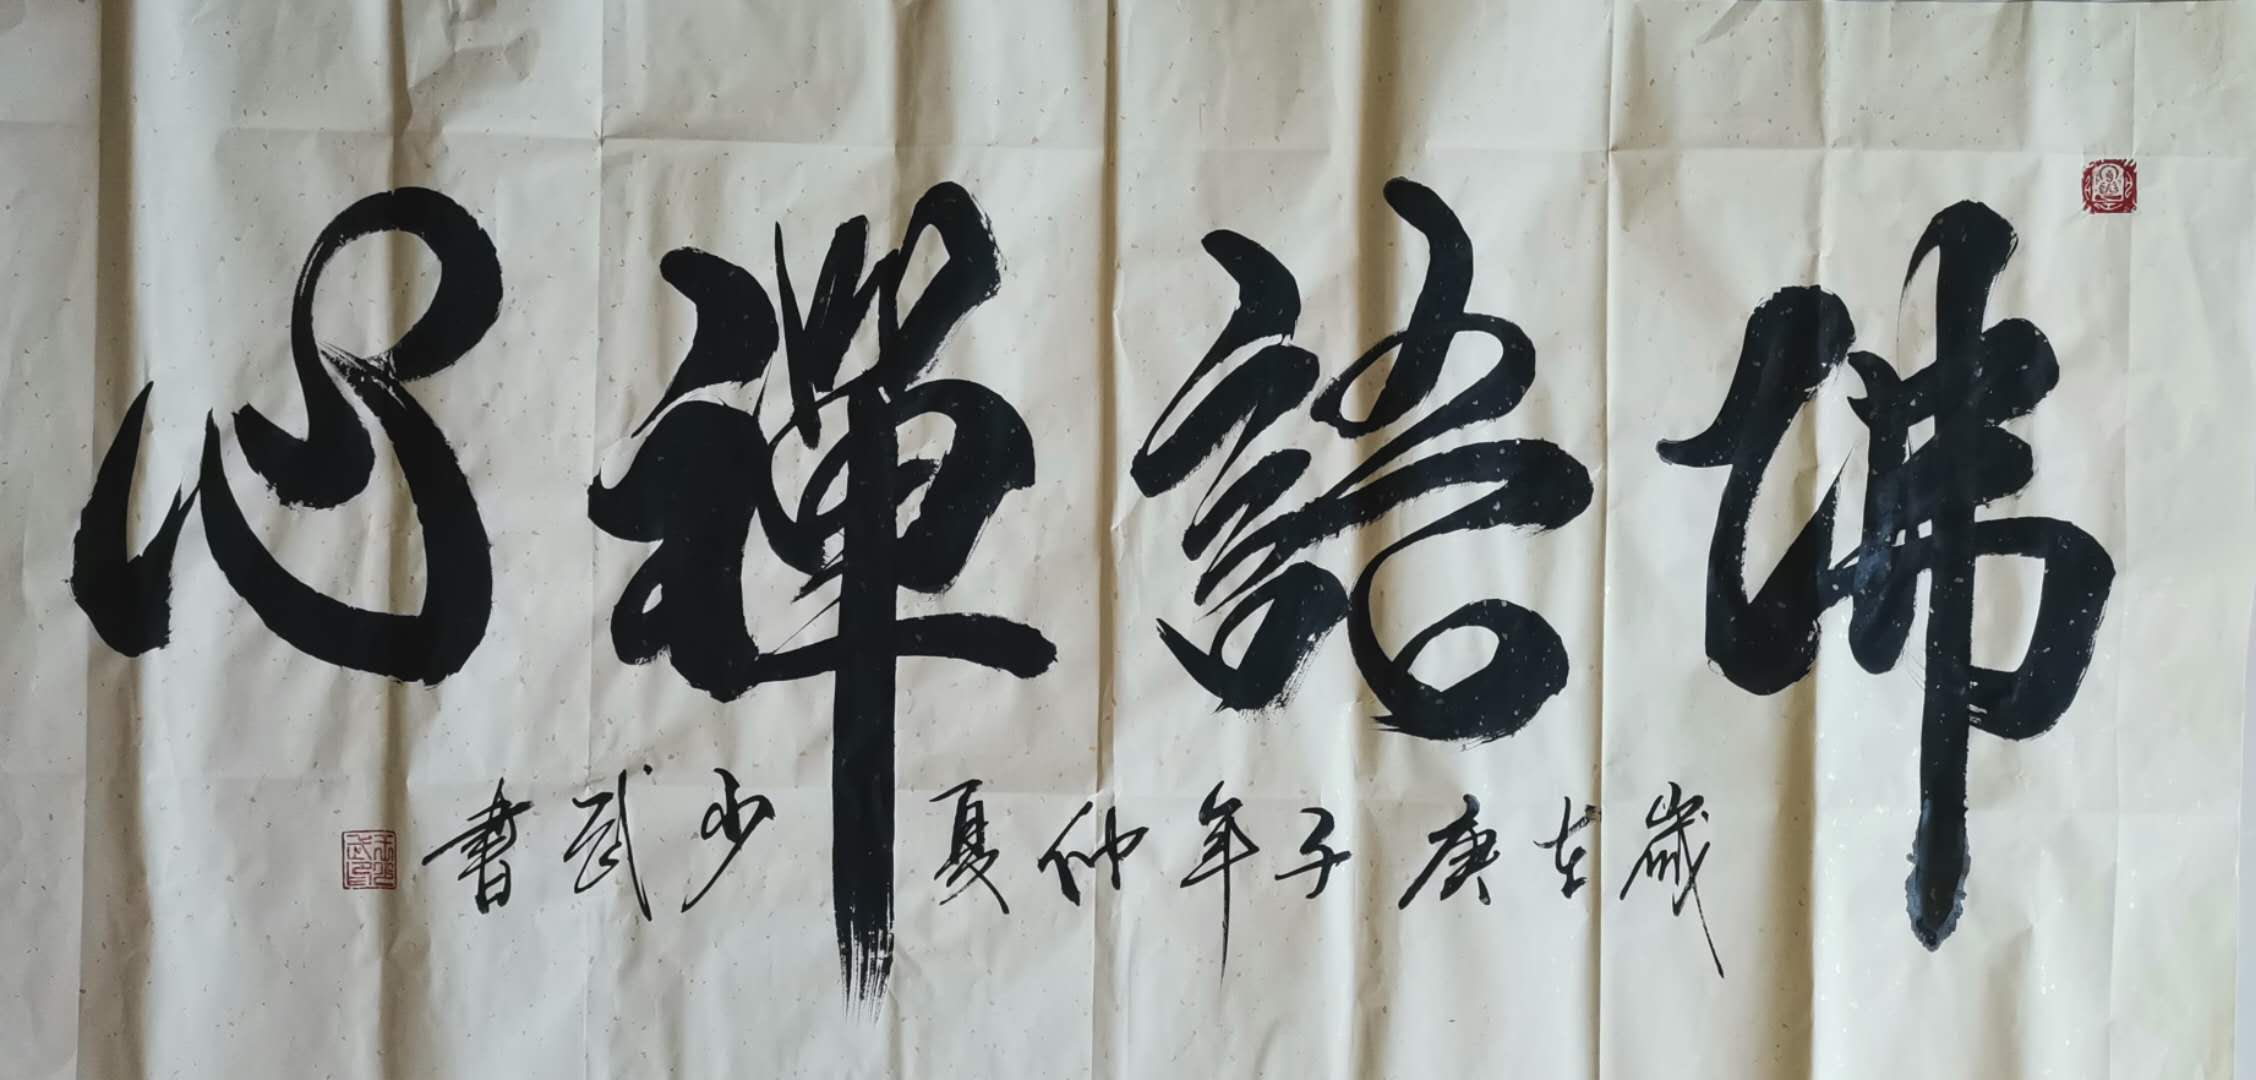 佛語禪心
歲在庚子年仲夏 少武書